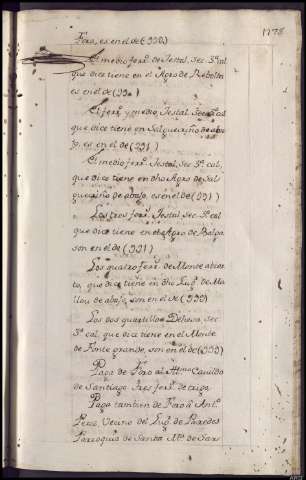 1778
Fera, es en el de (990)
El medio ferr.º de Jestal, Sec. 3.ª cal
que dice tiene en el Agro de Rebolta
es en el de (990)
El ferr.º y medio, Jestal, Sec. 3.ª cal
que dice tiene en Salgueiriño de aba-
jo, es en el de (991)
El medio ferr.º Jestal, Sec. 3.ª cal,
que dice tiene en dho Agro de Sal
gueiriño de abajo, es en el de (991)
Los tres ferr.º Jestal, Sec. 3.ª cal
que dice tiene en el Agro de
son en el de (991)
Los quatro ferr.º de Monte abier-
to, que dice tiene en dho Lug.r de Ma
llou de abajo, son en el de (990)
Los dos quartillos Dehesa, Sec.
3.ª cal, que dice tiene en el Monte
de Fonte grande, son en el de (990)
Paga de Foro al Ill.mo Cavildo
de Santiago, tres ferr.º de trigo
Paga tambien de Foro á Ant.º
Pérez, Vecino del Lug.r de Paredes
Parroquia de Santa M.ª de Sar